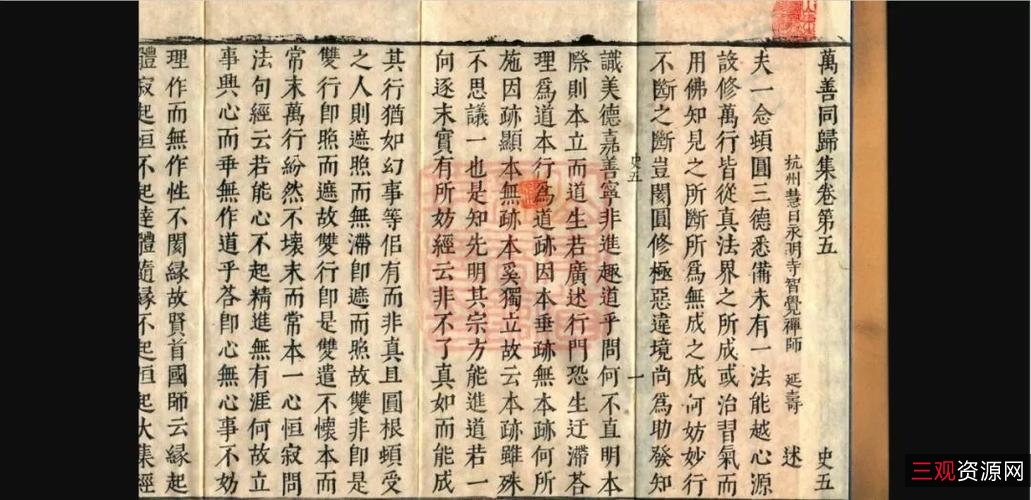 萬善同歸集卷第五 史五
杭州慧日永明寺智覺禪師 延壽 述
夫一念頓圓三德悉備未有一法能越心源
設修萬行皆從真法界之所成或治習氣而
用佛知見之所斷所為無成之成何妨妙行
不斷之斷豈閡圓修極惡違境尚為助發知
史五 一
識美德嘉善寧非進趣道乎問何不直明本
際則本立而道生若廣述行門恐生迂滯荅
理爲道本行爲道跡因本垂跡無本跡何所
施因跡顯本無跡本奚獨立故云本跡雖殊
不思議一也是知先明其宗方能進道若一
向逐末實有所妨經云非不了真如而能成
其行猶如幻事等佀有而非真且圓根頓受
之人則遮照而無滯即遮而照故雙非即是
雙行即照而遮故雙行即是雙遣不懷本而
常末萬行紛然不壞末而常本一心恒寂問
法句經云若能心不起精進無有涯何故立
事興心而乖無作道乎荅即心無心事不妨
理作而無作性不閡緣故賢首國師云緣起
體寂起恒不起達體隨緣不起恒起大集經
三观资源网